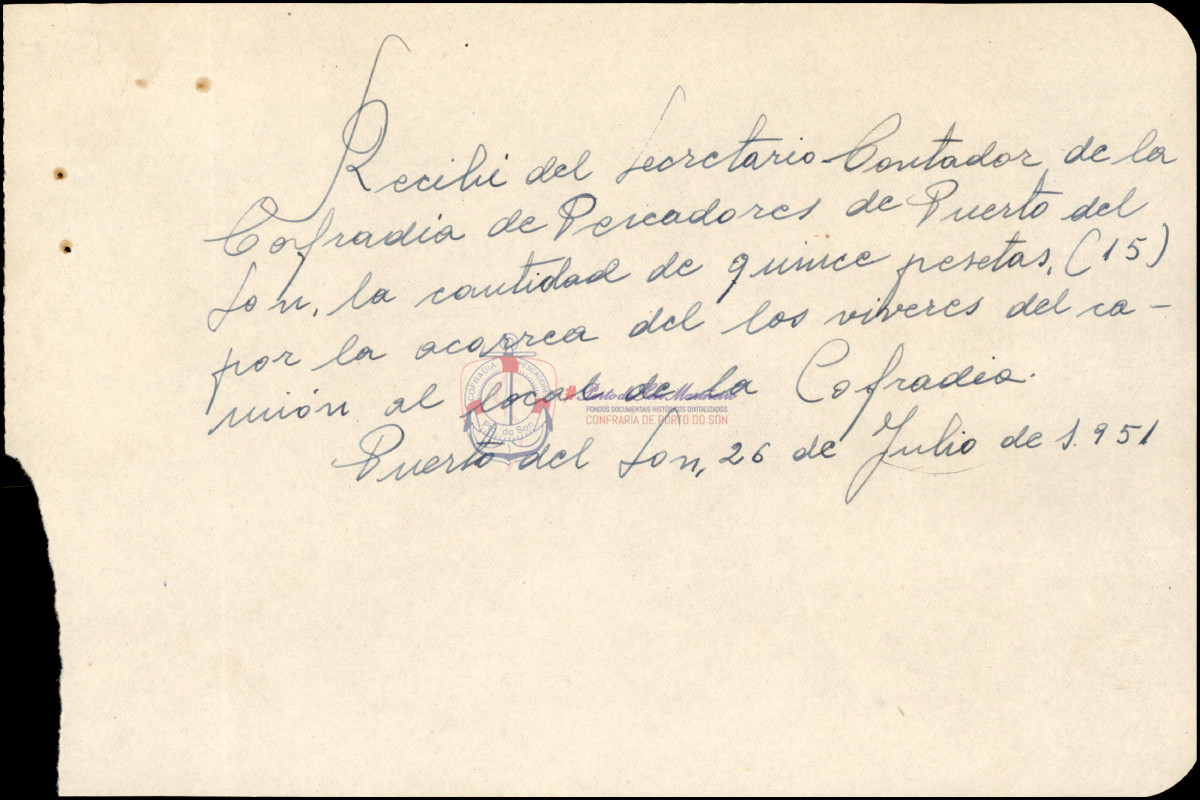 Recibí del Secretario Contador de la
Cofradia de Pescadores de Puerto del
Son, la cantidad de quince pesetas, (15)
por la acarrea del los viveres del ca-
mión al local de la Cofradia.
Puerto del Son, 26 de Julio de 1.951
COFRADIA PESCADORES
Pto do Son
FONDOS DOCUMENTAIS HISTÓRICOS DIXITALIZADOS
CONFRARÍA DE PORTO DO SON